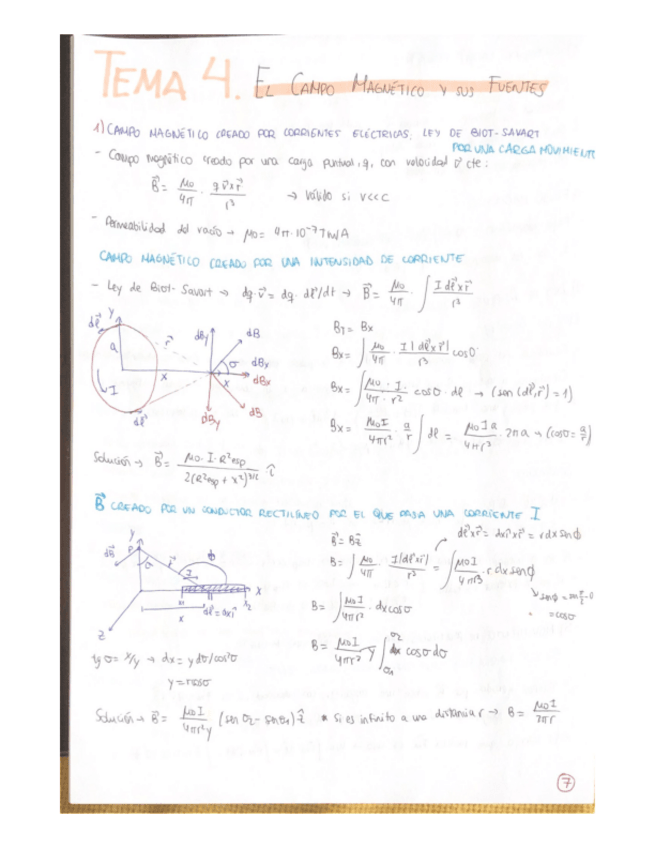 TEMA 4. EL CAMPO MAGNÉTICO Y SUS FUENTES
1) CAMPO MAGNÉTICO CREADO POR CORRIENTES ELÉCTRICAS: LEY DE BIOT-SAVART
POR UNA CARGA MOVIMIENTO
- Campo magnético creado por una carga puntual, q, con velocidad v⃗ cte:
B⃗ = μ0/4π · q v⃗ x r⃗ / r³ → válido si v<<c
- Permeabilidad del vacío → μ0 = 4π·10⁻⁷ Tm/A
CAMPO MAGNÉTICO CREADO POR UNA INTENSIDAD DE CORRIENTE
- Ley de Biot-Savart → dq·v⃗ = dq · dl⃗/dt → B⃗ = μ0/4π · ∫ I dl⃗ x r⃗ / r³
dl⃗ y a r⃗ x I dl⃗
dBy dB dBy σ dBx x dB dBy
BT = Bx
Bx = ∫ μ0/4π · I |dl⃗ x r⃗| / r³ cosσ
Bx = ∫ μ0 · I / 4π · r² cosσ · dl → (sen(dl⃗,r⃗) = 1)
Bx = μ0I/4πr² · a/r ∫ dl = μ0Ia/4πr³ · 2πa → (cosσ = a/r)
Solución → B⃗ = μ0 · I · R²esp / 2(R²esp + x²)^3/2 · î
B⃗ CREADO POR UN CONDUCTOR RECTILÍNEO POR EL QUE PASA UNA CORRIENTE I
y dB⃗ P σ r⃗ I ϕ x
dl⃗ = dx î
x
z
B⃗ = Bz
dl⃗ x r⃗ = dx î x r⃗ = r dx senϕ
B = ∫ μ0/4π · I|dl⃗ x r⃗| / r³ = ∫ μ0I/4πr³ · r dx senϕ
senϕ = sen π/2-σ
= cosσ
B = ∫ μ0I/4πr² · dx cosσ
B = μ0I/4πr² y ∫ σ2 σ1 cosσ dσ
tg σ = x/y → dx = y dσ/cos²σ
y = r cosσ
Solución → B⃗ = μ0I/4πr²y (sen σ2 - sen σ1) k̂ * Si es infinito a una distancia r → B = μ0I/2πr
7